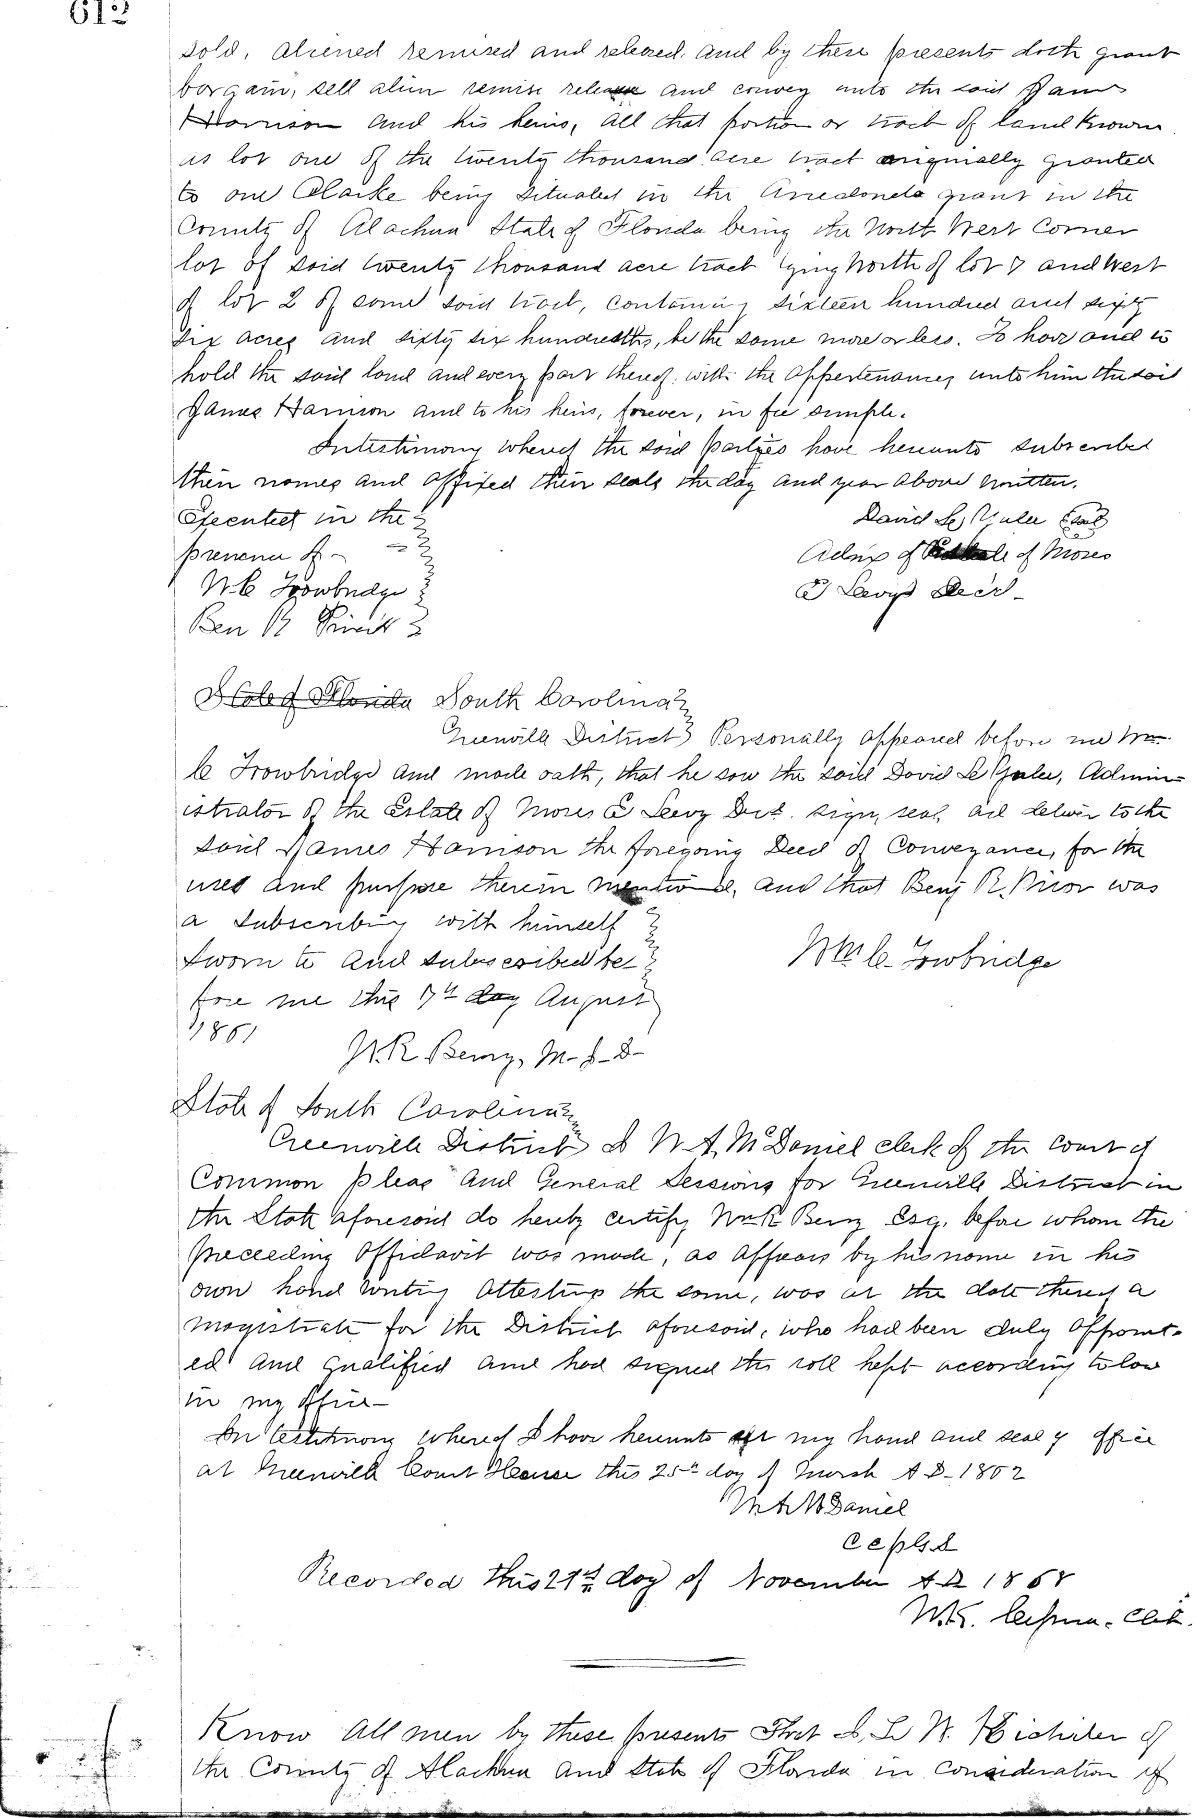 612
sold, aliened remised and released. and by these presents doth grant
bargain, sell alien remise release and convey unto the said James
Harrison and his heirs, all that portion or tract of land known
as lot one of the twenty thousand acre tract originially granted
to one Clarke being situated in the Arredondo grant in the
County of Alachua State of Florida being the North West Corner
lot of said twenty thousand acre tract lying North of lot 7 and West
of lot 2 of same said tract, containing sixteen hundred and sixty
six acres and sixty six hundredths, be the same more or less. To have and to
hold the said land and every part thereof. with the appertenances unto him the said
James Harrison and to his heirs, forever, in fee simple.
Intestimony whereof the said parties have hereunto subscribed
their names and affixed their seals the day and year above written.
Executed in the
presence of
W. C Trowbridge
Ben R
David L. Yulee Seal
Admx of Estate of Moses
E Levy Dec'd
State of Florida South Carolina
Greenville District Personally appeared before me Wm
C Trowbridge and made oath, that he saw the said David L Yulee, Admin-
istrator of the Estate of Moses E Levy Decd. sign, seal, and deliver to the
said James Harrison the foregoing Deed of Conveyance, for the
uses and purpose therein mentioned, and that Benj R. Prior was
a subscribing with himself
Sworn to and subsescribed be-
fore me this 7th day August
1851
Wm C. Towbridge
W. R Berry, M. G. D
State of South Carolina
Greenville District I W. A. McDaniel clerk of the court of
Common pleas and General Sessions for Greenville District in
the State aforesaid do hereby certify Wm R Berry Esq. before whom the
preceeding affidavit was made, as appears by his name in his
own hand writing attesting the same, was at the date thereof a
magistrate for the District aforesaid, who had been duly appoint-
ed and qualified and had signed the roll kept according to law
in my office
In testimony whereof I have hereunto set my hand and seal of office
at Greenville Court House this 25th day of March A D 1852
W. A. McDaniel
C C P & G. S
Recorded this 21st day of November A D 1868
Clk.
Know all men by these presents That I, L W. of
the County of Alachua and State of Florida in consideration of